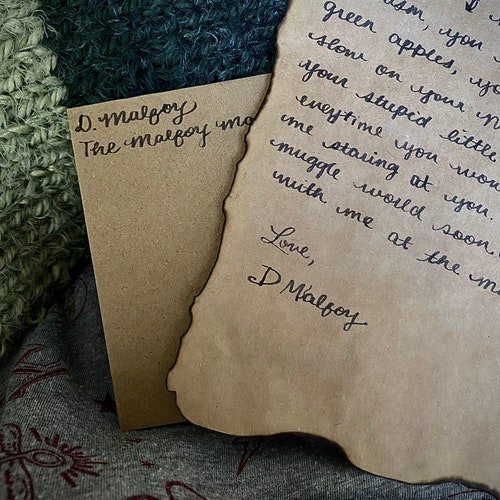 D. Malfoy
The Malfoy
you
green apples,
slow on your
your stupid little
everytime you
me staring at you.
muggle world soon.
with me at the
Love,
D Malfoy